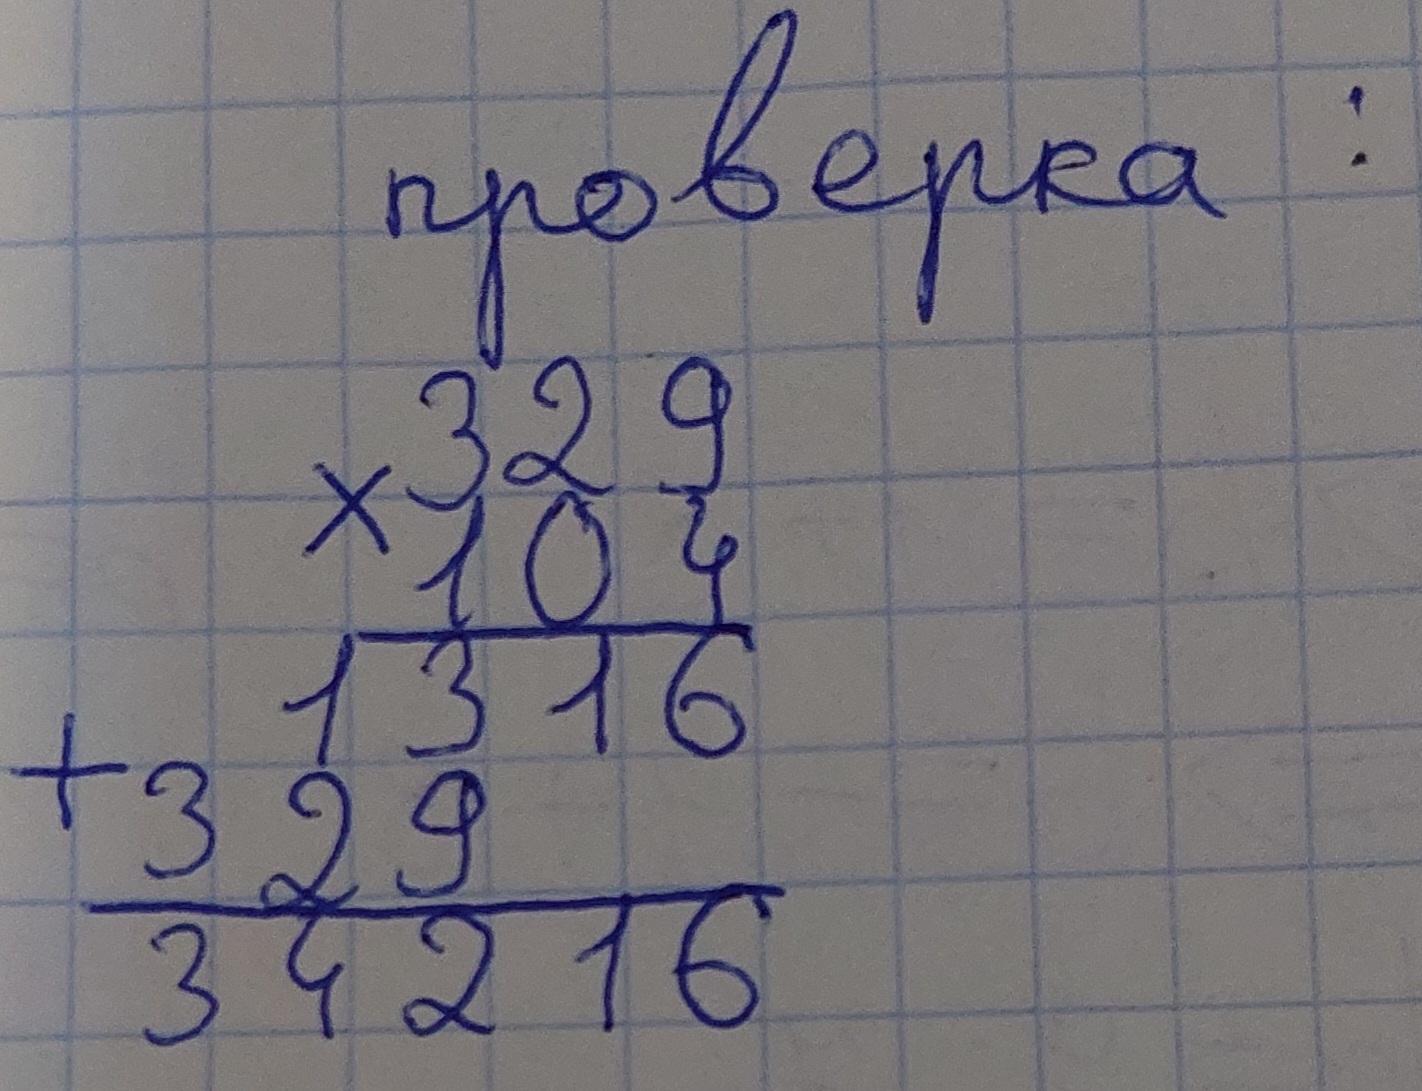 проверка :
329
× 104
1316
+ 329
34216